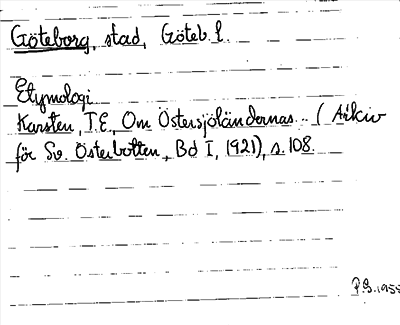 Göteborg, stad, Göteb. l.
Etymologi
Karsten, T.E., Om Östersjöländernas... (Arkiv
för Sv. Österbotten, Bd I, 1921), s. 108.
P.S. 1955